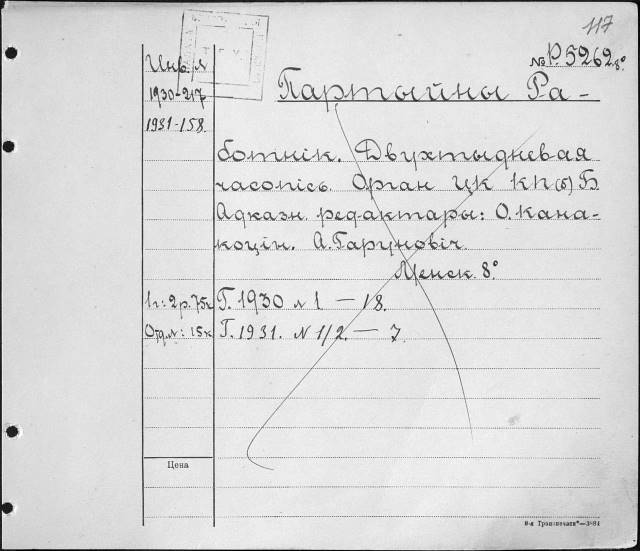 117
№ Р.5262 8°
Инв. №
1930-217
1931-158
Партыйны Ра-
ботнік. Двухтыднёвая
часопісь. Орган ЦК КП(б)Б
Адказн. редактары: О. Кана-
коцін. А. Гаруновіч.
Менск 8°
1 г: 2 р. 75 к Г. 1930 № 1 — 18.
Отд. №: 15 к Г. 1931. № 1/2. — 7
Цена